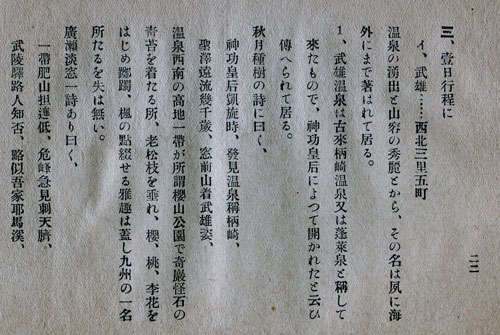 三、壹日行程に
イ、武雄……西北三里五町
温泉の湧出と山容の秀麗とから、その名は夙に海
外にまで著はれて居る。
1、武雄温泉は古來柄崎温泉又は蓬萊泉と稱して
來たもので、神功皇后によつて開かれたと云ひ
傳へられて居る。
秋月種樹の詩に曰く、
神功皇后凱旋時、發見温泉稱柄崎、
聖澤遠流幾千歳、窓前山着武雄姿、
温泉西南の高地一帶が所謂櫻山公園で奇巖怪石の
靑苔を着たる所、老松枝を垂れ、櫻、桃、李花を
はじめ躑躅、楓の點綴せる雅趣は蓋し九州の一名
所たるを失は無い。
廣瀨淡窓一詩あり曰く、
一帶肥山担邐低、危峰急見刺天臍、
武陵驛路人知否、略似吾家耶馬溪、
二二